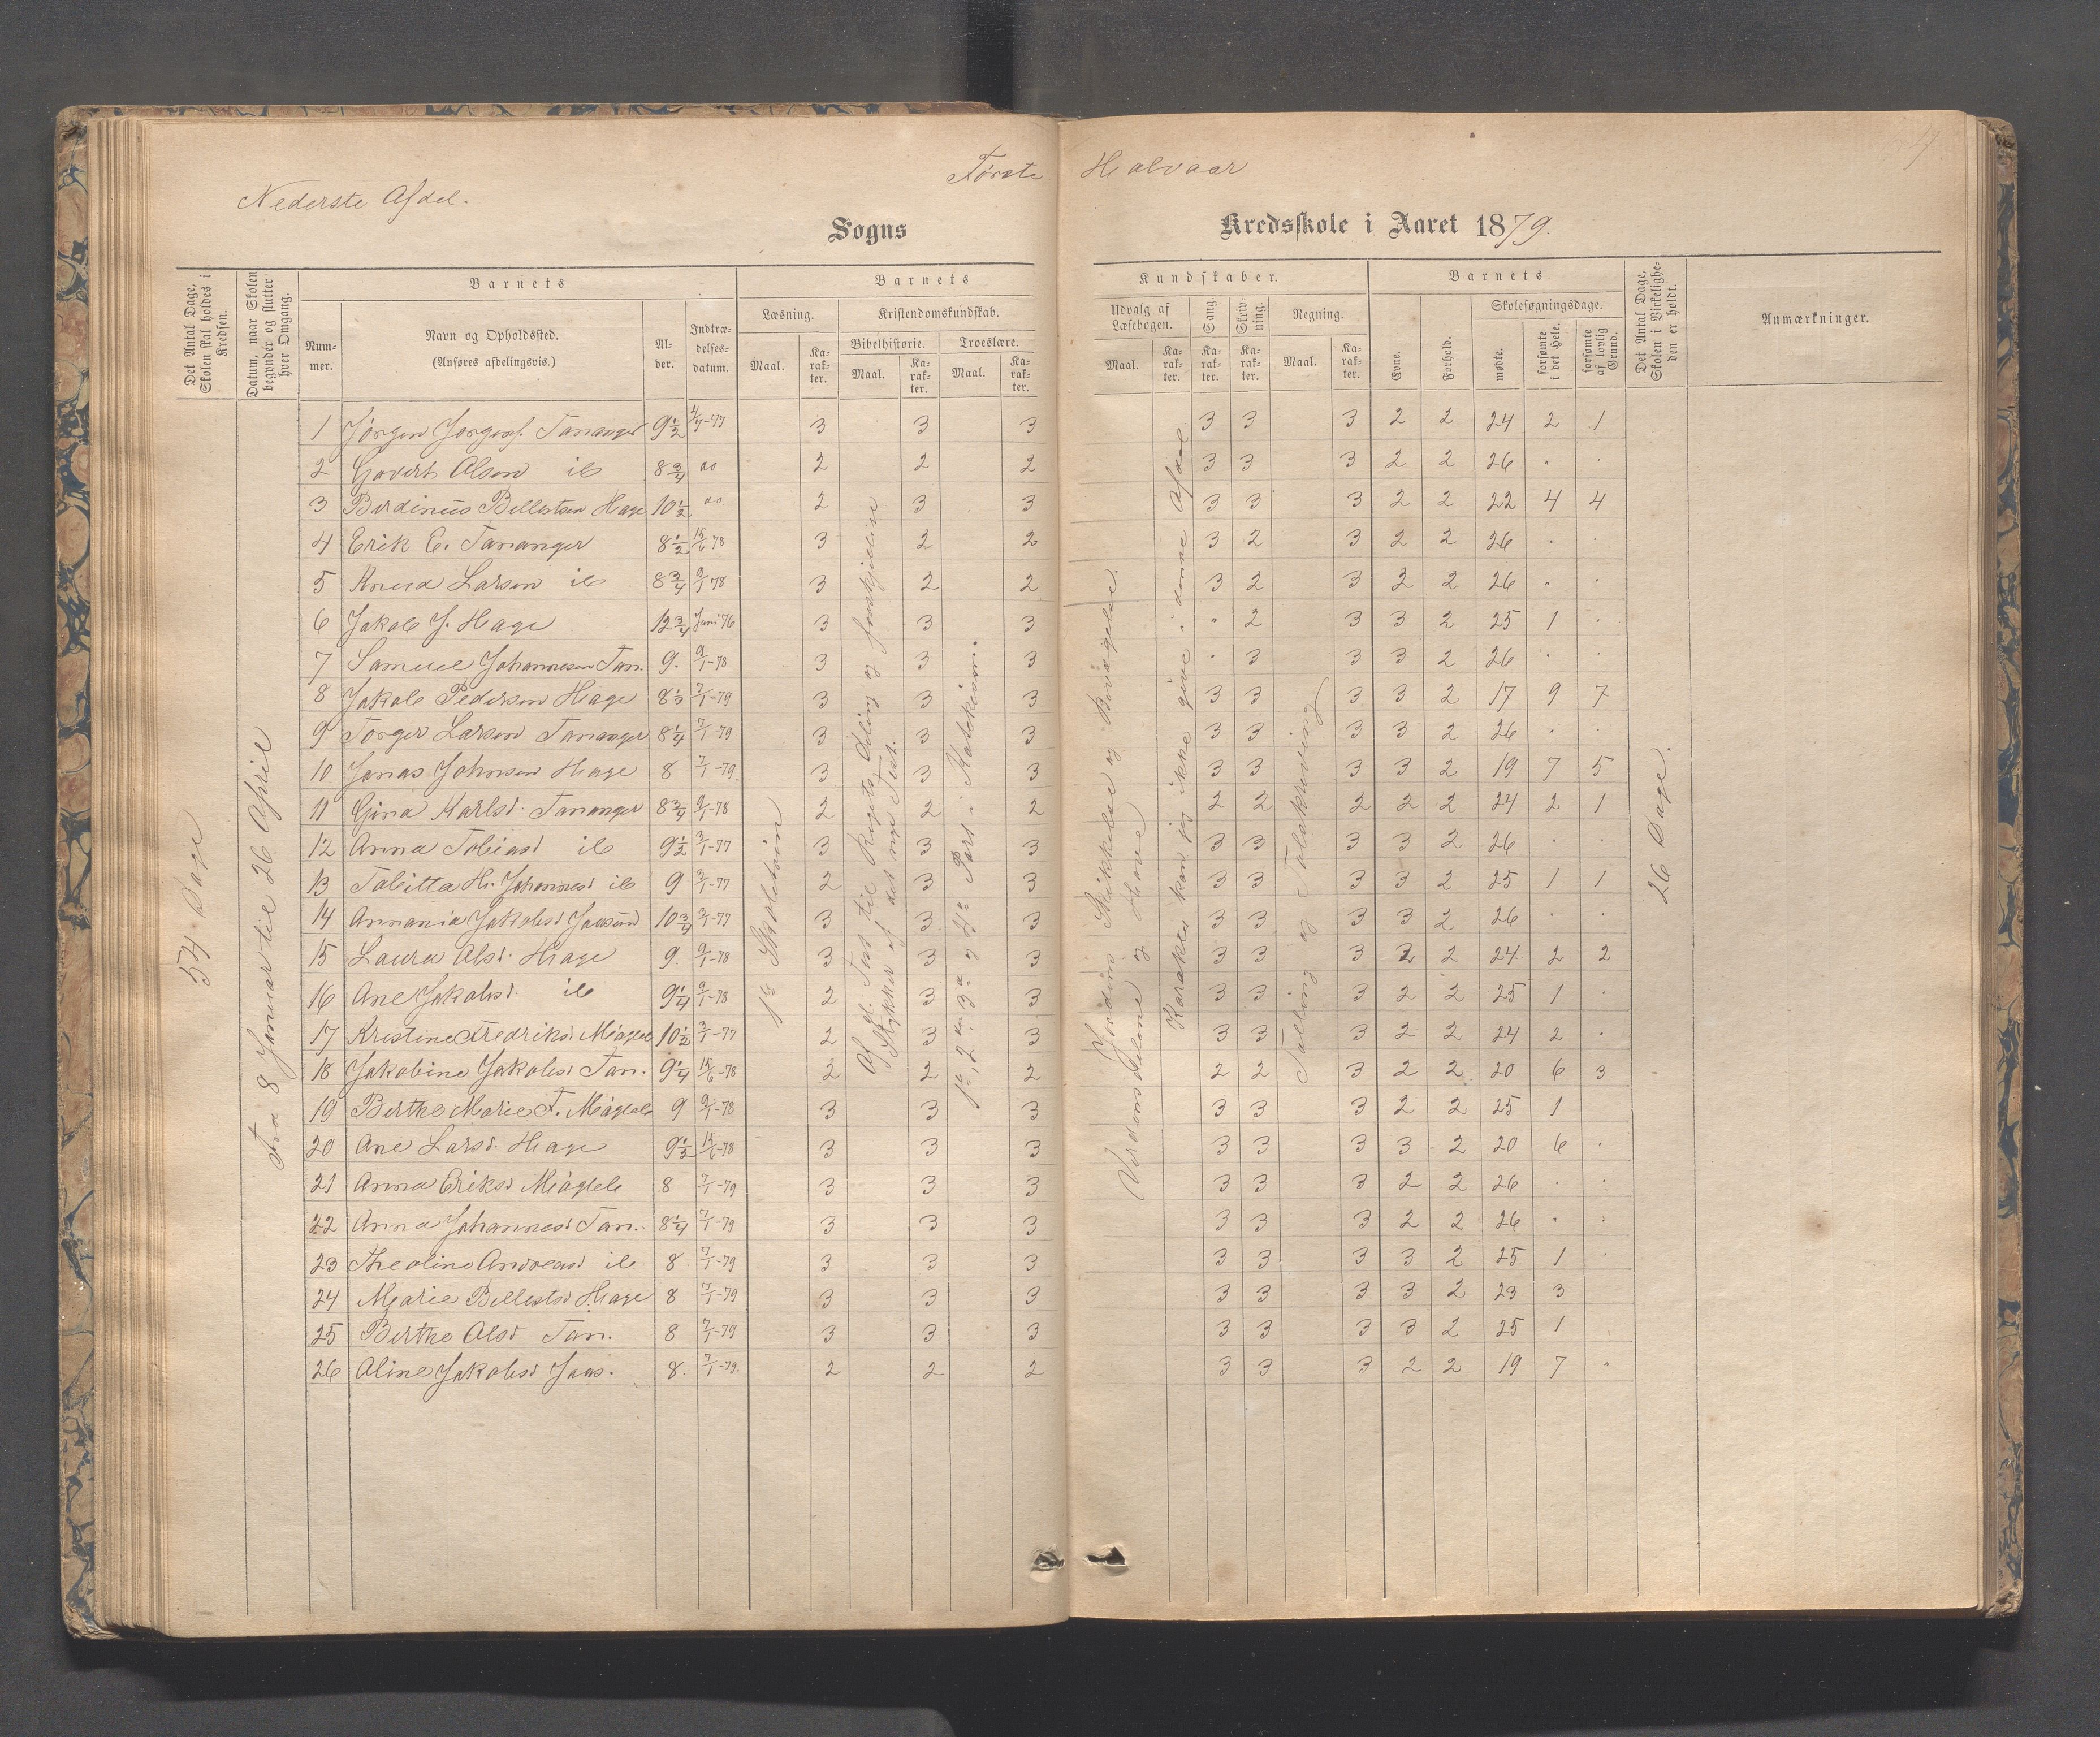 Første Halvaar
Nederste Afdel.
Sogns Kredsskole i Aaret 1879.
Det Antal Dage, Skolen skal holdes i Kredsen.
Datum, naar Skolen begynder og slutter hver Omgang.
Barnets
Num-mer.
Navn og Opholdssted.
(Anføres afdelingsvis.)
Al-der.
Indtræ-delses-datum.
Barnets
Læsning.
Maal.
Ka-rak-ter.
Kristendomskundskab.
Bibelhistorie.
Maal.
Ka-rak-ter.
Troeslære.
Maal.
Ka-rak-ter.
Kundskaber.
Udvalg af Læsebogen.
Maal.
Ka-rak-ter.
Sang.
Ka-rak-ter.
Skriv-ning.
Ka-rak-ter.
Regning.
Maal.
Ka-rak-ter.
Barnets
Evne.
Forhold.
Skolesøgningsdage.
mødte.
forsømte i det Hele.
forsømte af lovlig Grund.
Det Antal Dage, Skolen i Virkelighe-den er holdt.
Anmærkninger.
54 Dage
Fra 8 Januar til 26 April
1ste Skoletrin
Af gl. Test. til Rigets Deling og forskjellige
Stykker af det nye Test.
1ste, 2den, 3die og 4de Part i Katekism.
Jordens Skikkelse og Bevægelse.
Verdensdelene og Have
Karakter kan jeg ikke give i denne Afdel.
Tælling og Talskrivning
26 Dage.
1 Jørgen Jørgens. Tananger 9½ 4/7-77 3 3 3 3 3 3 2 2 24 2 1
2 Govert Olsen ib 8¾ do 2 2 2 3 3 3 2 2 26 " "
3 Berdinius Bellestsen Hage 10½ do 2 3 3 3 3 3 2 2 22 4 4
4 Erik E. Tananger 8½ 15/6 78 3 2 2 3 2 3 2 2 26 " "
5 Knud Larsen ib 8¾ 9/1 78 3 2 2 3 2 3 2 2 26 " "
6 Jakob J. Hage 12¾ Juni 76 3 3 3 " 2 3 3 2 25 1 "
7 Samuel Johannesen Tan. 9. 9/1-78 3 3 3 " 3 3 3 2 26 " "
8 Jakob Pedersen Hage 8½ 7/1-79 3 3 3 3 3 3 3 2 17 9 7
9 Torger Larsen Tananger 8¼ 7/1-79 3 3 3 3 3 3 3 2 26 " "
10 Jonas Johnsen Hage 8 7/1-79. 3 3 3 3 3 3 3 2 19 7 5
11 Gina Karlsd. Tananger 8¾ 9/1-78 2 2 2 2 2 2 2 2 24 2 1
12 Anna Tobiasd ib 9½ 3/1-77 3 3 3 3 3 3 3 2 26 " "
13 Tabitta H. Johannesd ib 9 3/1-77 2 3 3 3 3 3 3 2 25 1 1
14 Annania Jakobsd Jaasund 10¾ 3/1-77 3 3 3 3 3 3 3 2 26 " "
15 Laura Olsd. Hage 9. 9/1-78 3 3 3 3 3 3 2 2 24 2 2
16 Ane Jakobsd. ib 9¼ 9/1-78 2 3 3 3 3 3 2 2 25 1 "
17 Kristine Fredriksd Meagleb 10½ 3/1-77 2 3 3 3 3 3 2 2 24 2 "
18 Jakobine Jakobsd Tan. 9¼ 15/6-78 2 2 2 2 2 3 2 2 20 6 3
19 Berthe Marie F. Meagleb 9 9/1-78 3 3 3 3 3 3 2 2 25 1
20 Ane Larsd. Hage 9½ 15/6-78 3 3 3 3 3 3 3 2 20 6 "
21 Anna Eriksd Meagleb 8 7/1-79 3 3 3 3 3 3 2 2 26 " "
22 Anna Johannesd Tan. 8¼ 7/1-79 3 3 3 3 3 3 2 2 26 " "
23 Theoline Andreasd ib 8 7/1-79 3 3 3 3 3 3 3 2 25 1 "
24 Marie Bellestsd Hage 8 7/1-79 3 3 3 3 3 3 3 2 23 3
25 Berthe Olsd Tan. 8 7/1-79 3 3 3 3 3 3 3 2 25 1
26 Aline Jakobsd Jaas. 8. 7/1-79. 2 2 2 3 3 3 2 2 19 7 "